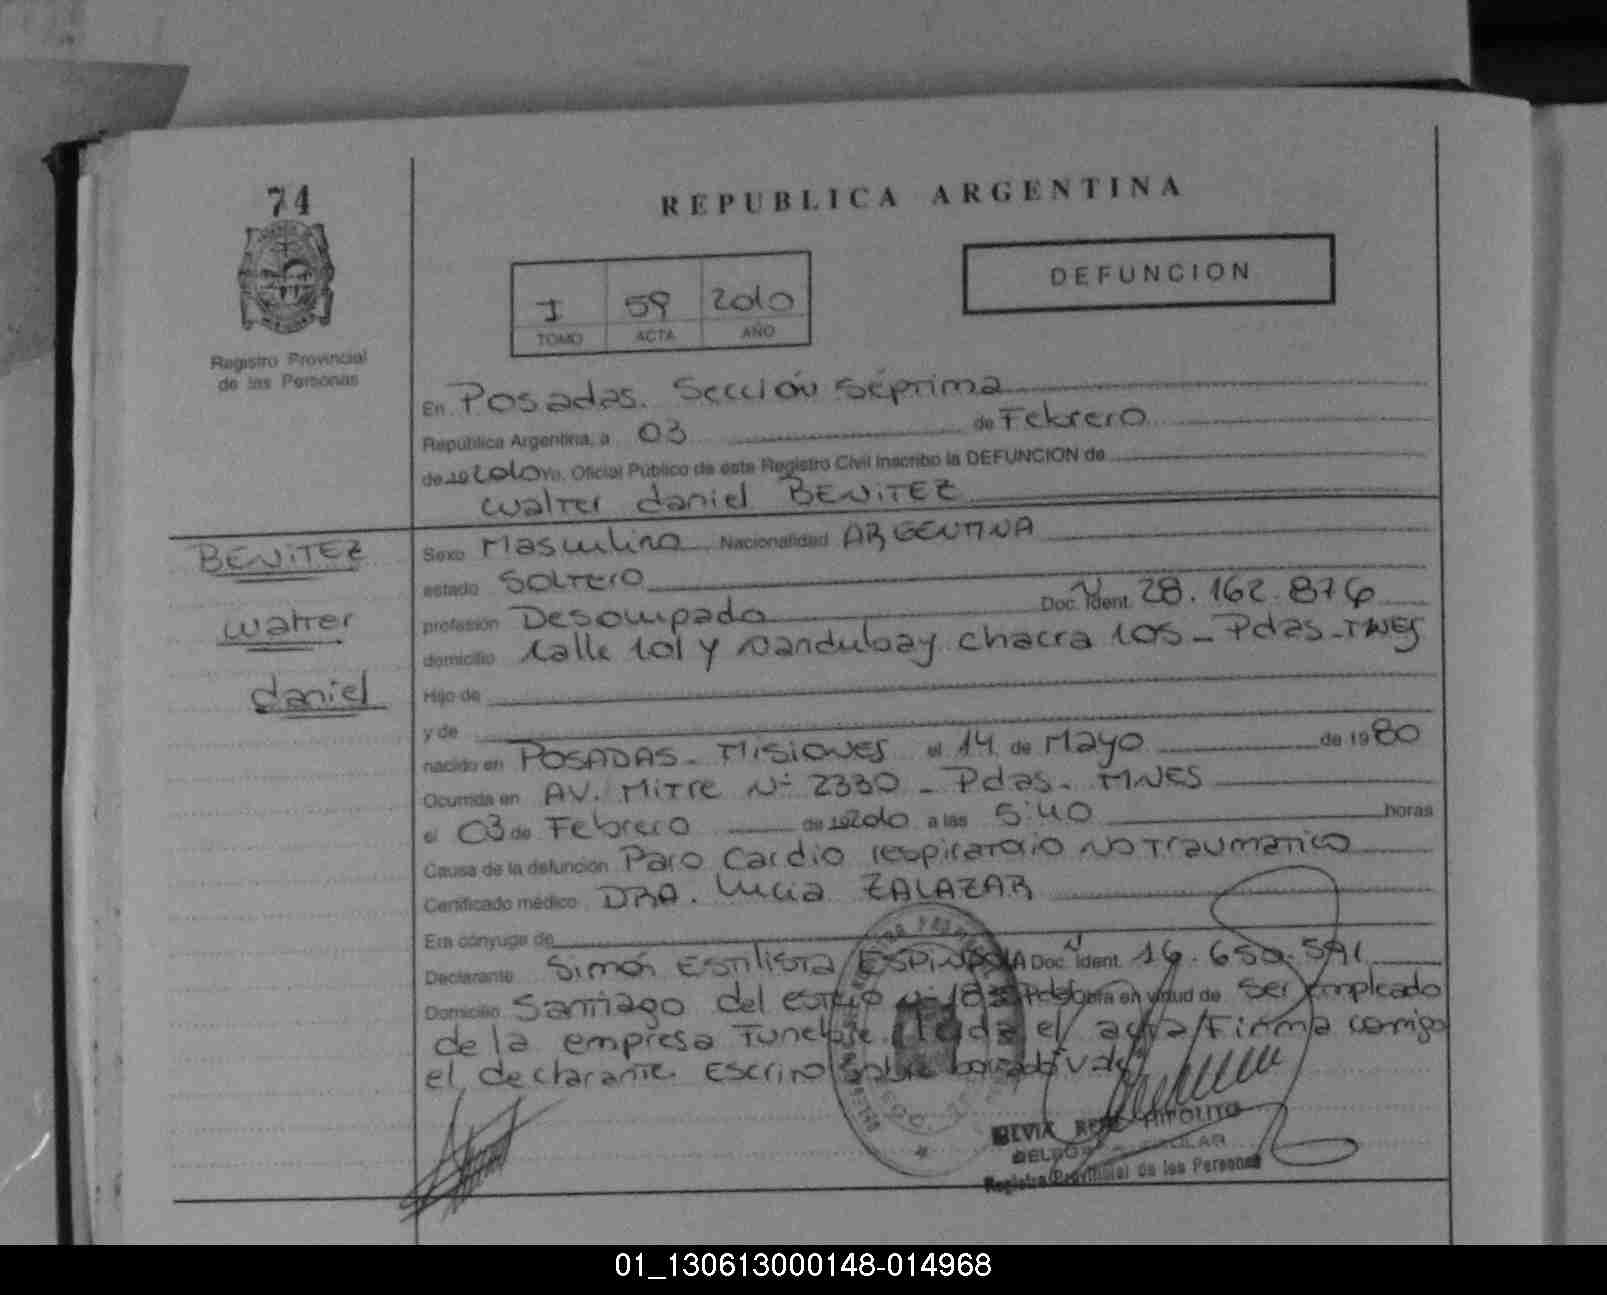 74
REPUBLICA ARGENTINA
I 59 2010
TOMO ACTA AÑO
DEFUNCION
Registro Provincial
de las Personas
En Posadas. Sección Séptima
República Argentina, a 03 de Febrero
de 19 2010 Yo, Oficial Público de este Registro Civil inscribo la DEFUNCION de
Walter daniel BENITEZ
BENITEZ
Walter
daniel
Sexo Masculino Nacionalidad ARGENTINA
estado SOLTERO
profesión Desocupado Doc. Ident. Nº 28.162.876
domicilio Calle 101 y Ñandubay chacra 105 - Pdas - MNES
Hijo de
y de
nacido en POSADAS - MISIONES el 14 de Mayo de 1980
Ocurrida en AV. MITRE Nº 2330 - Pdas - MNES
el 03 de Febrero de 19 2010 a las 5:40 horas
Causa de la defunción Paro Cardio respiratorio NO Traumatico
Certificado médico DRA. Lucia ZALAZAR
Era cónyuge de
Declarante Simón Estilista ESPINDOLA Doc. Ident. Nº 16.650.591
Domicilio Santiago del estero Nº Obra en virtud de ser empleado
de la empresa Funebre. Leida el acta Firma conmigo
el declarante. Escrito sobre borrado Vale
SILVIA HIPOLITO
TITULAR
Registro Provincial de las Personas
01_130613000148-014968